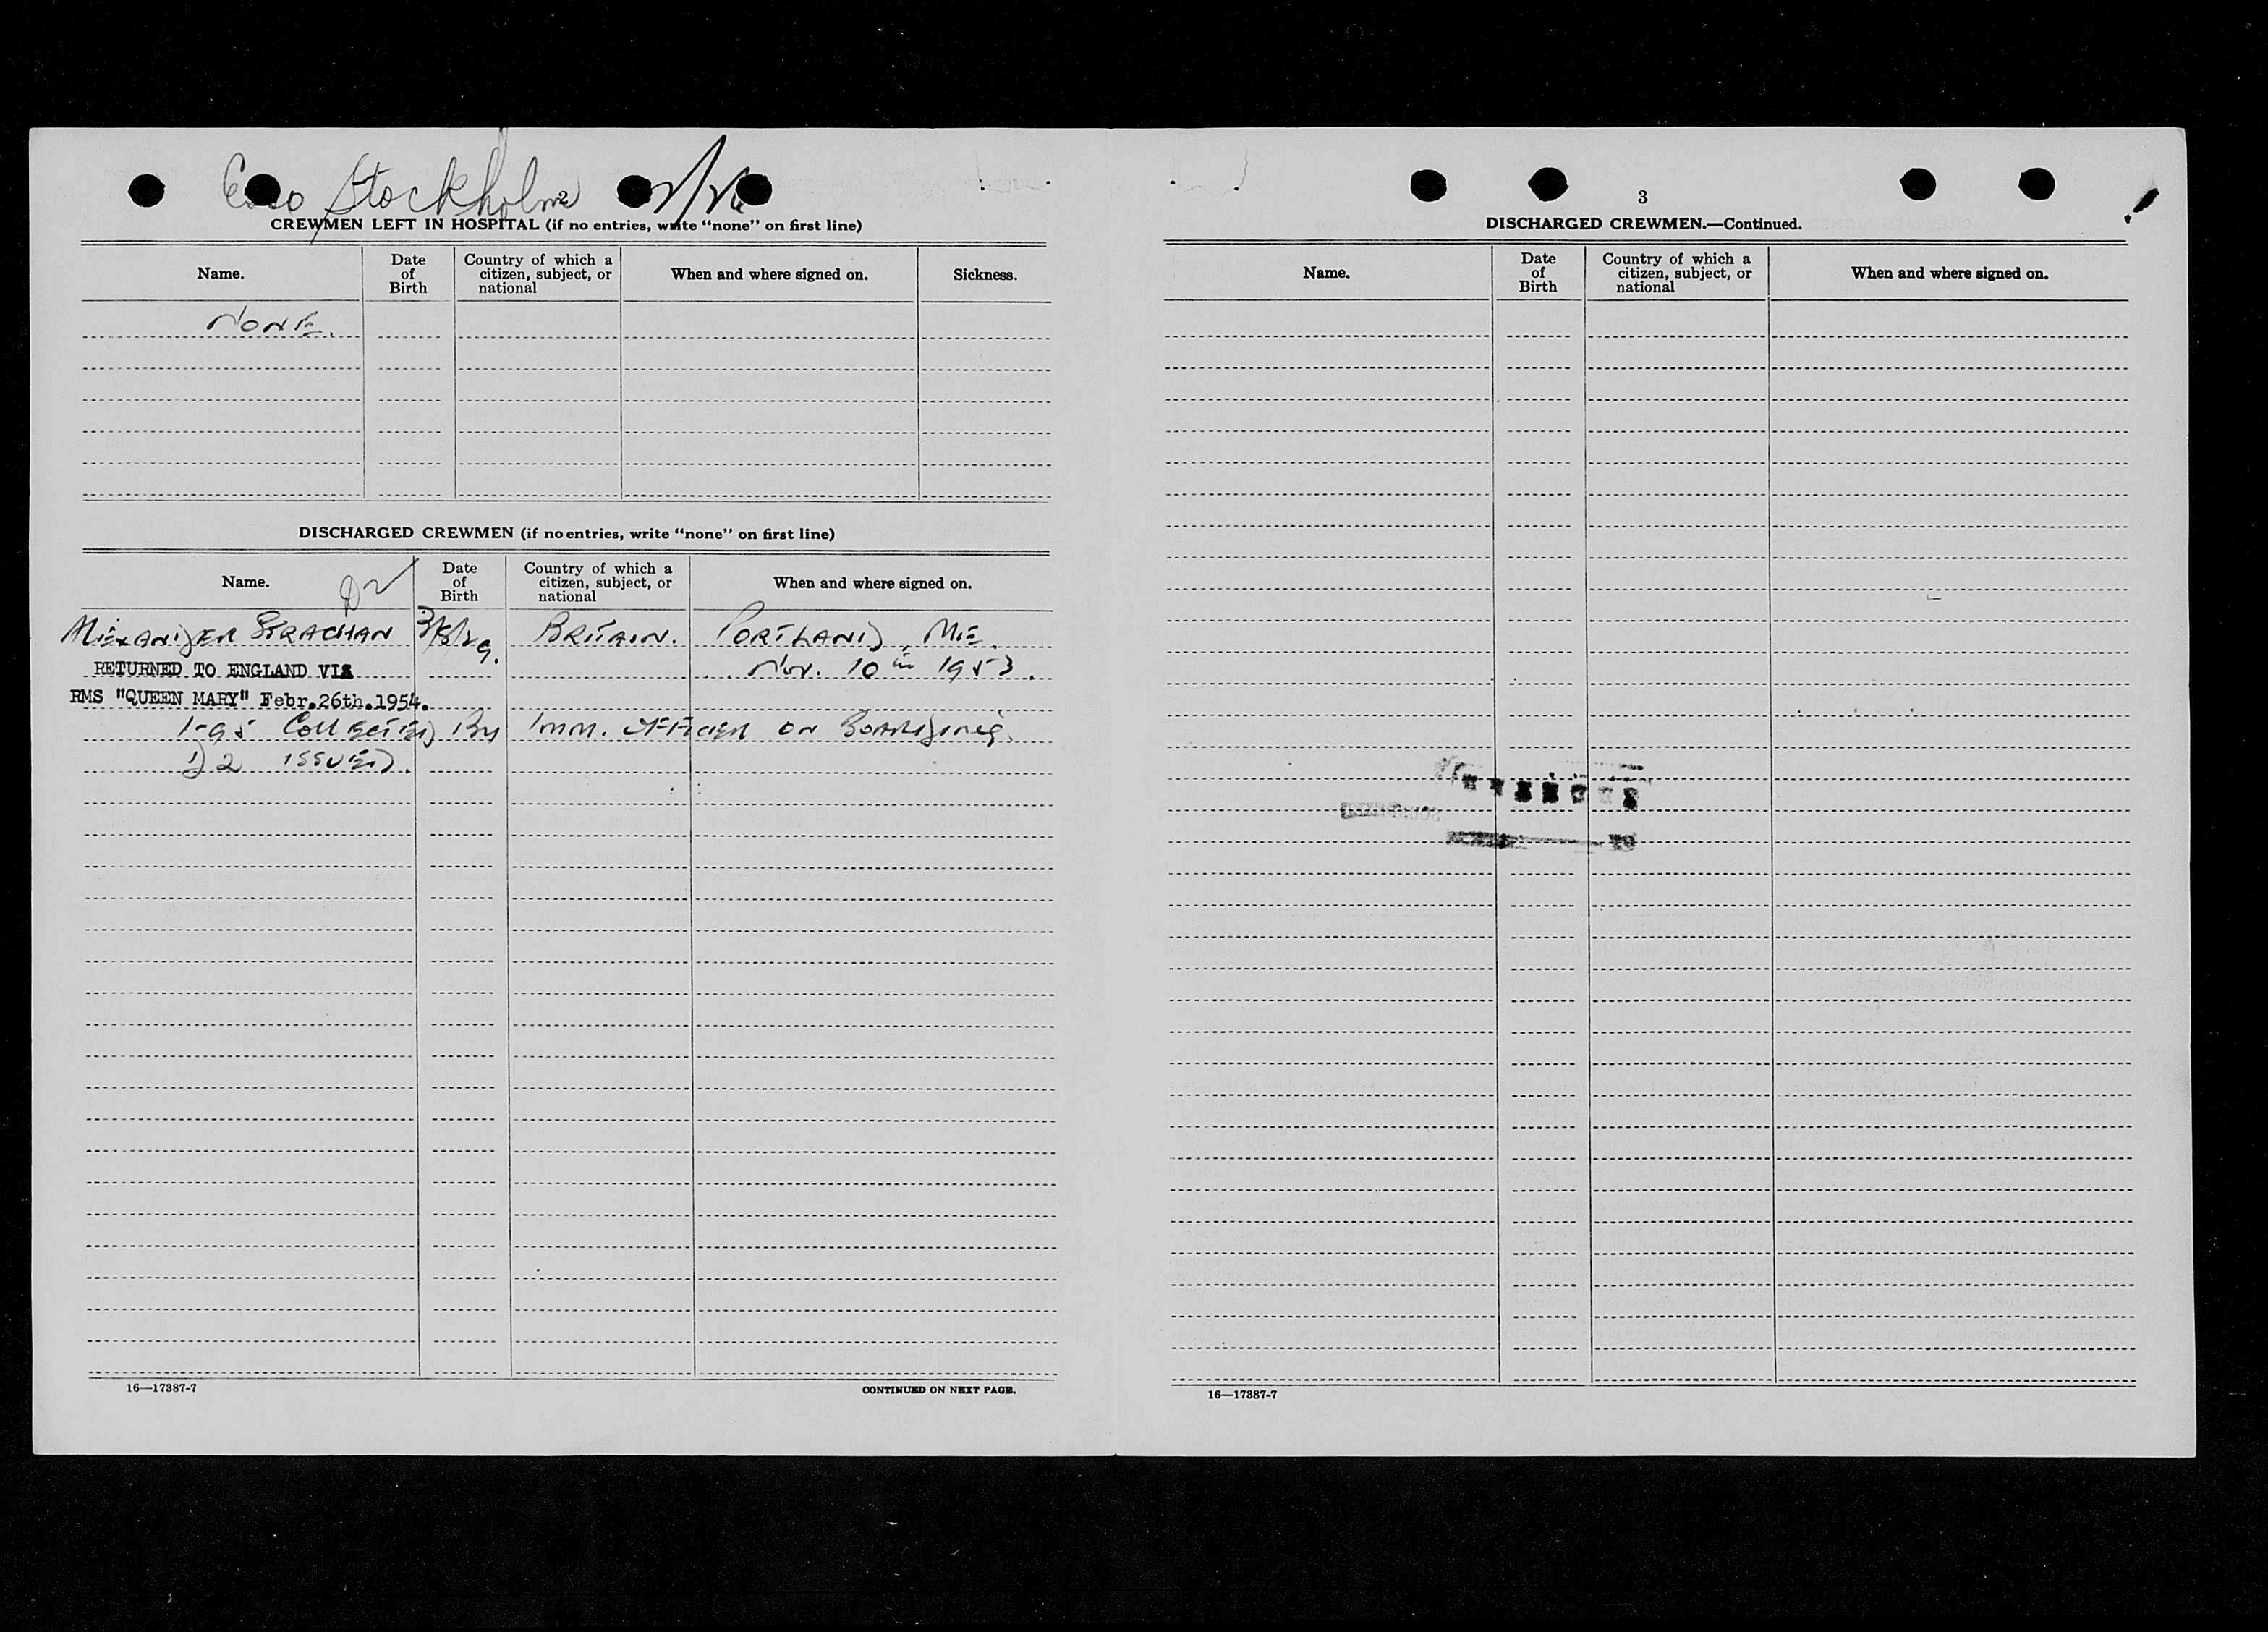 Esso Stockholm 2/26
2
CREWMEN LEFT IN HOSPITAL (if no entries, write "none" on first line)
Name. Date of Birth Country of which a citizen, subject, or national When and where signed on. Sickness.
NONE.
DISCHARGED CREWMEN (if no entries, write "none" on first line)
Name. D2 Date of Birth Country of which a citizen, subject, or national When and where signed on.
ALEXANDER STRACHAN BRITAIN. PORTLAND, ME.
RETURNED TO ENGLAND VIA Nov. 10th 1953.
RMS "QUEEN MARY" Febr.26th.1954.
I-95 COLLECTED By IMM. OFFICER ON BOARDING.
D2 ISSUED.
16—17387-7 CONTINUED ON NEXT PAGE.
3
DISCHARGED CREWMEN.—Continued.
Name. Date of Birth Country of which a citizen, subject, or national When and where signed on.
16—17387-7